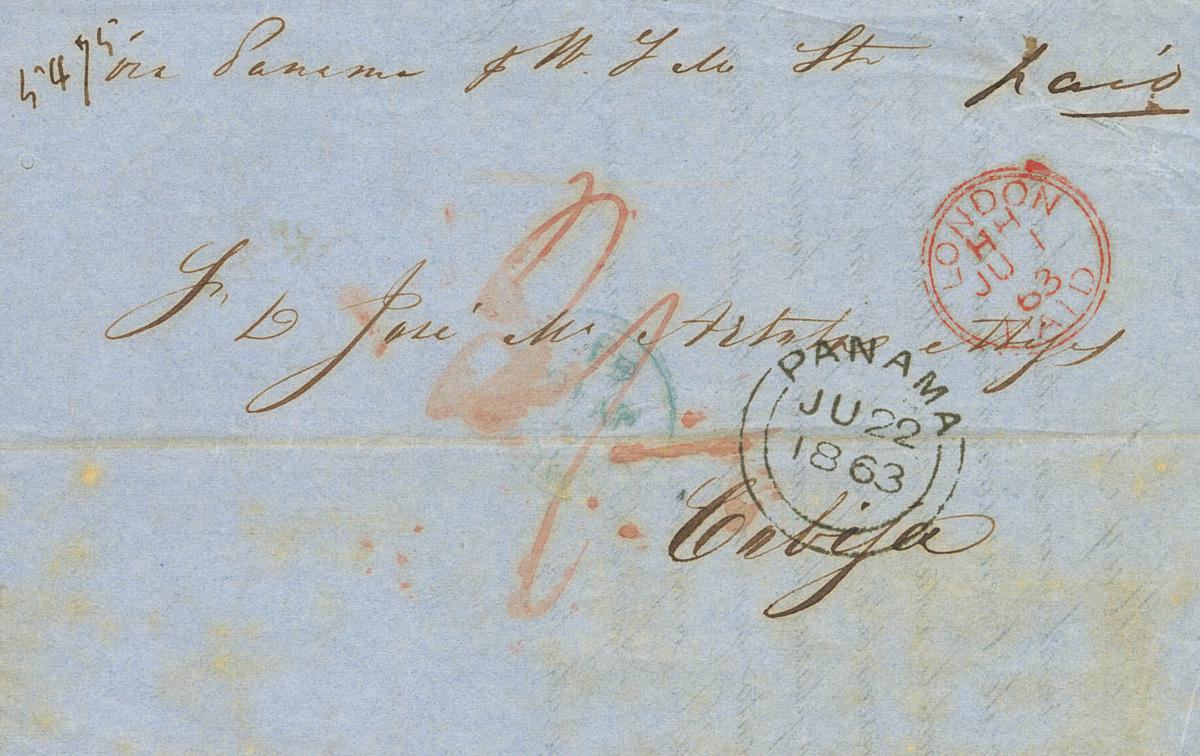 5475
via Panama p W. I M St paid
LONDON
HH 1
JU 63
PAID
Sr. D José Ma Artola Reyes
PANAMA
JU 22
1863
Cobija